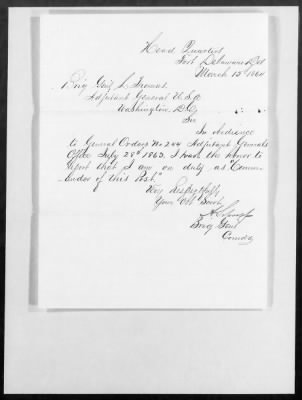 Head Quarters,
Fort Delaware Del
March 15th 1864
Brig Genl L. Thomas.
Adjutant General U.S.A
Washington D.C.
Sir
In obedience
to General Orders No 244 Adjutant Generals
Office July 28th 1863, I have the honor to
report that I am on duty as "Comm-
ander of this Post."
Very Respectfully
Your Obt Servt
Brig Genl
Comdg